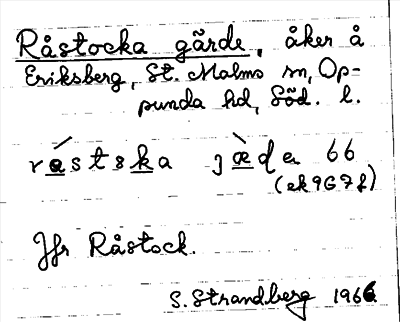 Råstocka gärde, åker å
Eriksberg, St. Malms sn, Op-
punda hd, Söd. l.
råstska jæde 66
(ek 9G7f)
Jfr Råstock.
S. Strandberg 1966